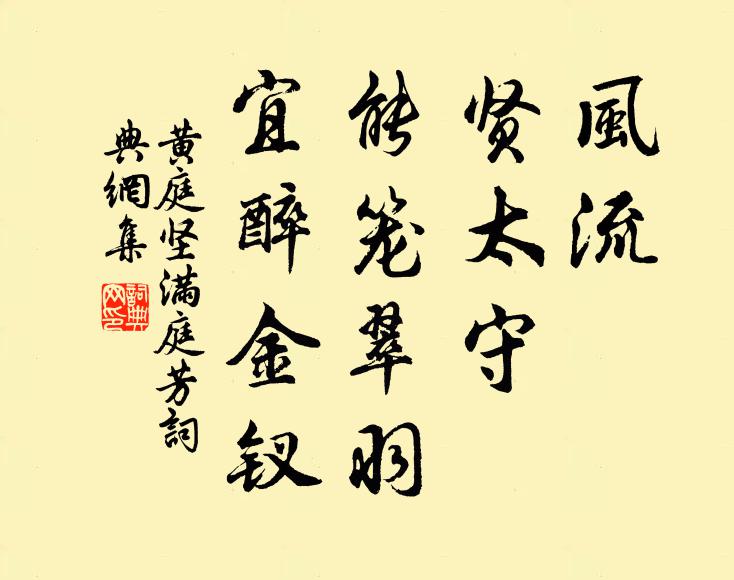 風流
贤太守
能笼翠羽
宜醉金钗
黄庭坚满庭芳詞
典網集
詞典網印